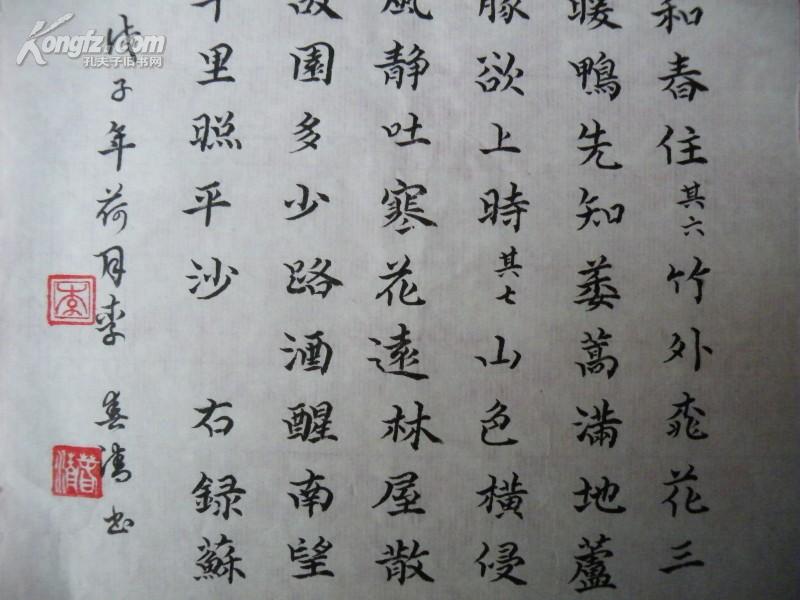 和春住其六竹外桃花三
暖鴨先知蒌蒿滿地蘆
豚欲上時其七山色橫侵
風靜吐寒花遠林屋散
故園多少路酒醒南望
千里照平沙 右録蘇
戊子年荷月李春清书
李
春清
Kongfz.com
孔夫子旧书网